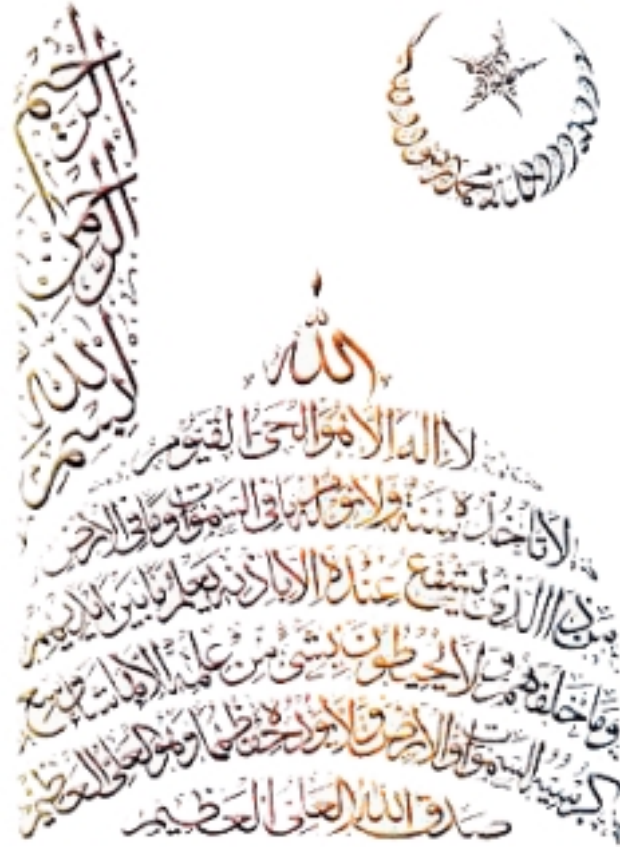 بسم الله الرحمن الرحيم
محمد رسول الله
الله
لا اله الا هو الحي القيوم
لا تاخذه سنة ولا نوم له ما في السموات وما في الارض
من ذا الذي يشفع عنده الا باذنه يعلم ما بين ايديهم
وما خلفهم ولا يحيطون بشئ من علمه الا بما شاء وسع
كرسيه السموات والارض ولا يوده حفظهما وهو العلي العظيم
صدق الله العلي العظيم